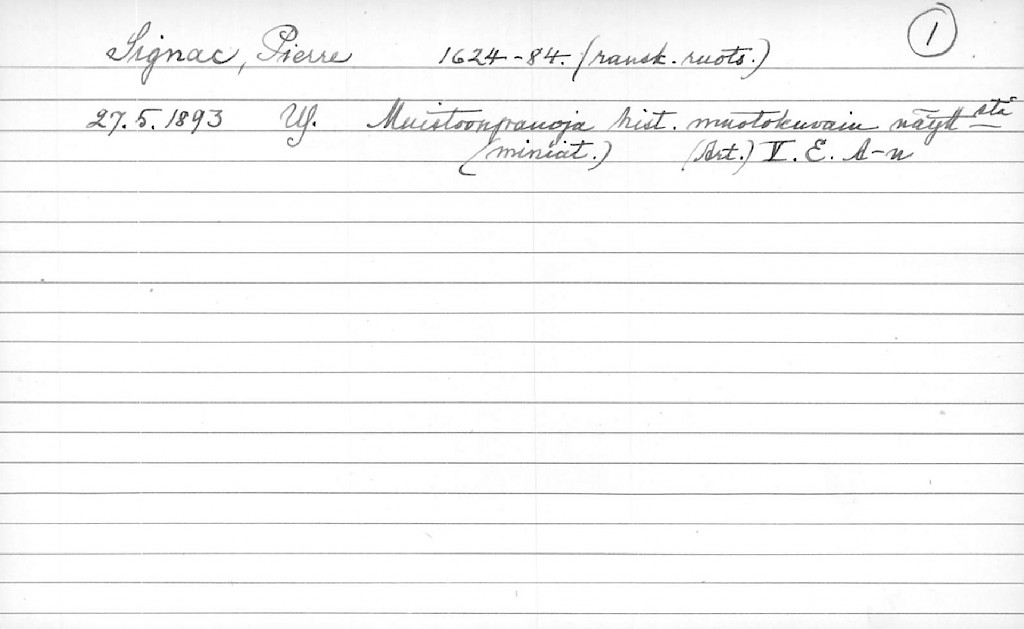 Signac, Pierre 1624-84. (ransk. ruots.) 1
27.5.1893 US. Muistoonpanoja hist. muotokuvain näytt stä
(miniat.) (Art.) V. E. A-n